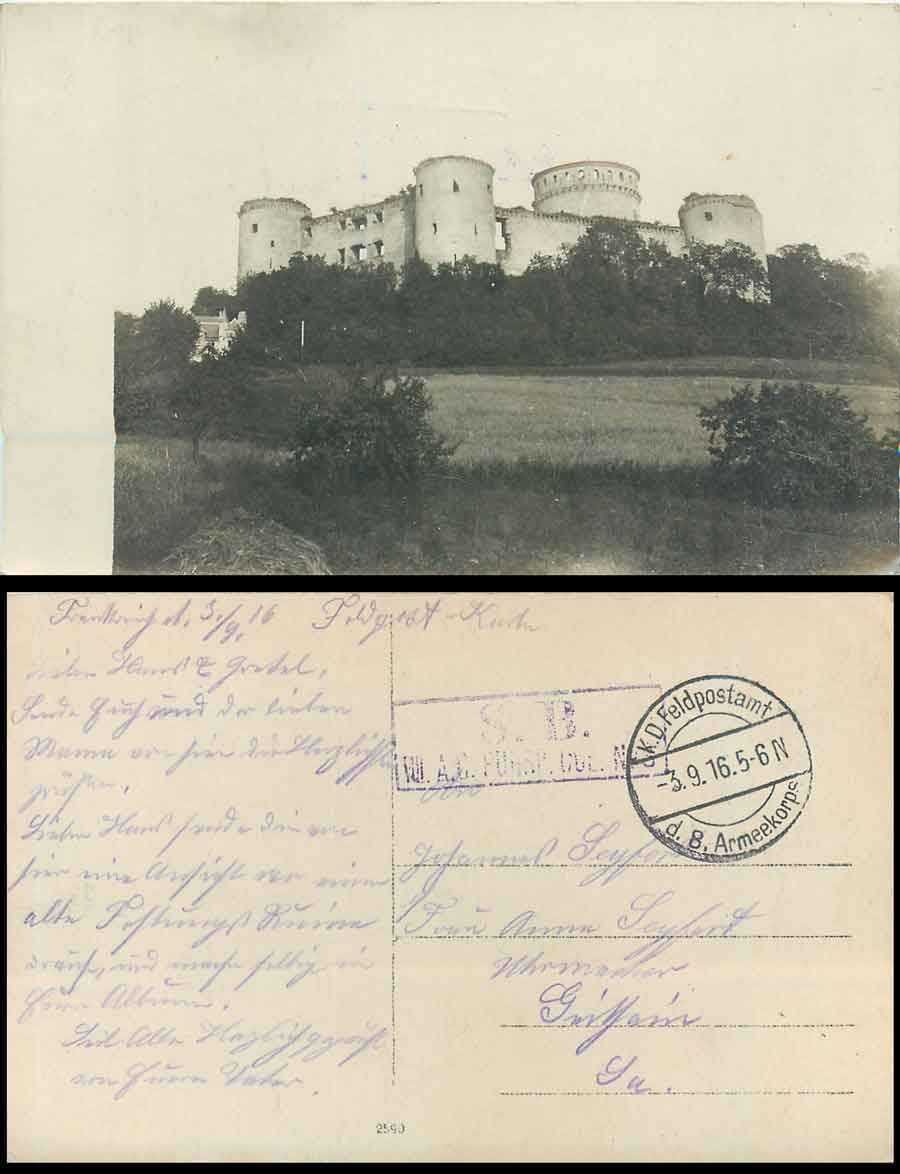 Frankreich d. 3./9. 16 Feldpost-Karte
Lieben Hans & Gretel,
Sende Euch und der lieben
Mama von hier die Herzlichsten
Grüßen,
Lieber Hans sende dir von
hier eine Ansicht von einer
alte Festungs Ruine
drauf, und mache selbig in
Euren Album.
Seid Alle Herzlich gegrüßt
von Euren Vater
S. B.
A.C. FURSP. COL. N
K.D. Feldpostamt
-3.9.16.5-6 N
d. B. Armeekorps
An
Johannes
Frau Anna Seyfert
Uhrmacher
Geithain
Sa.
2590